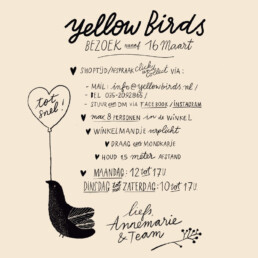 yellow birds
BEZOEK vanaf 16 MAART
SHOPTIJD/AFSPRAAK click & collect VIA:
- MAIL: info@yellowbirds.nl /
- BEL 035-2092866 /
- STUUR ONS DM VIA FACEBOOK / INSTAGRAM
MAX 8 PERSONEN in de WINKEL
WINKELMANDJE verplicht
DRAAG een MONDKAPJE
HOUD 1,5 méter AFSTAND
MAANDAG: 12 tot 17u
DINSDAG t/m ZATERDAG: 10 tot 17u
tot
snel!
liefs,
Annemarie
& Team